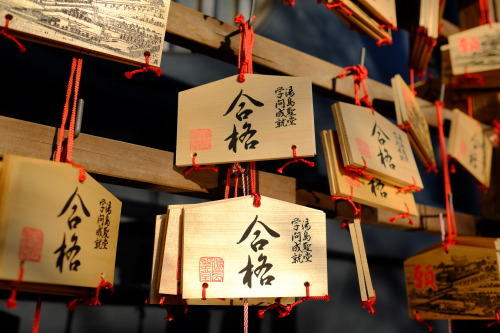 湯島聖堂
学問成就
合格
湯島聖堂
学問成就
合格
湯島聖堂
学問成就
合格
合格
合格
願